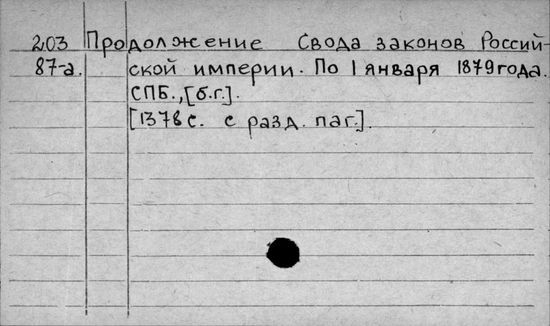 203 Продолжение Свода законов Россий-
87-а. ской империи. По 1 января 1879 года.
СПБ., [б.г.].
[1378 с. с разд. паг.].